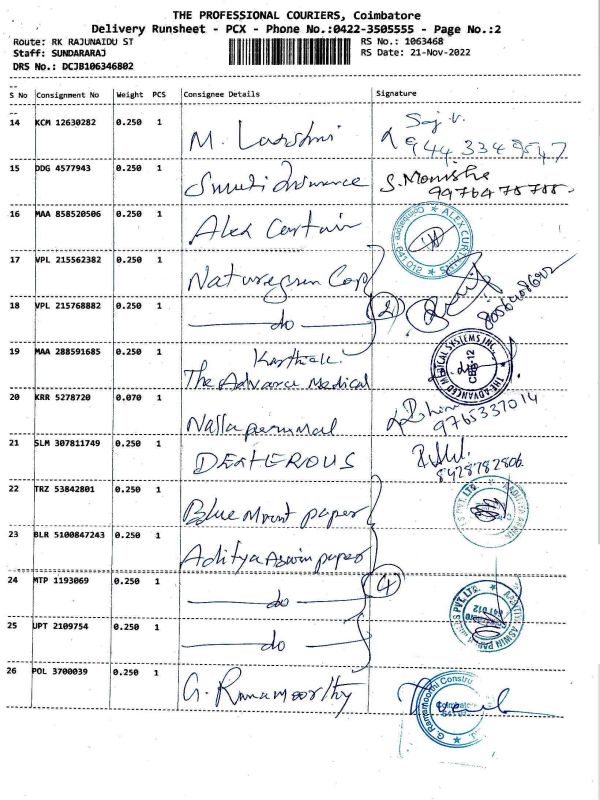 THE PROFESSIONAL COURIERS, Coimbatore
Delivery Runsheet - PCX - Phone No.:0422-3505555 - Page No.:2
Route: RK RAJUNAIDU ST RS No.: 1063468
Staff: SUNDARARAJ RS Date: 21-Nov-2022
DRS No.: DCJB106346802
S No Consignment No Weight PCS Consignee Details Signature
14 KCM 12630282 0.250 1 M. Lakshmi
15 DDG 4577943 0.250 1 Insurance S. Monisha
16 MAA 858520506 0.250 1 Alex Curtain
ALEX CURTAINS Coimbatore - 641 012
17 VPL 215562382 0.250 1 Naturegreen Corp
18 VPL 215768882 0.250 1 do (2)
19 MAA 288591685 0.250 1 Karthik.
The Advance Medical
THE ADVANCED MEDICAL SYSTEMS INC. CBE-12
20 KRR 5278720 0.070 1 Nallaperumal 9765337014
21 SLM 307811749 0.250 1 DEXTEROUS 8428782806
22 TRZ 53842801 0.250 1 Blue Mount paper
23 BLR 5100847243 0.250 1 Aditya Aswin paper
24 MTP 1193069 0.250 1 do (4)
25 UPT 2109754 0.250 1 do
26 POL 3700039 0.250 1 G. Ramamoorthy
G. Ramamoorthi Constru